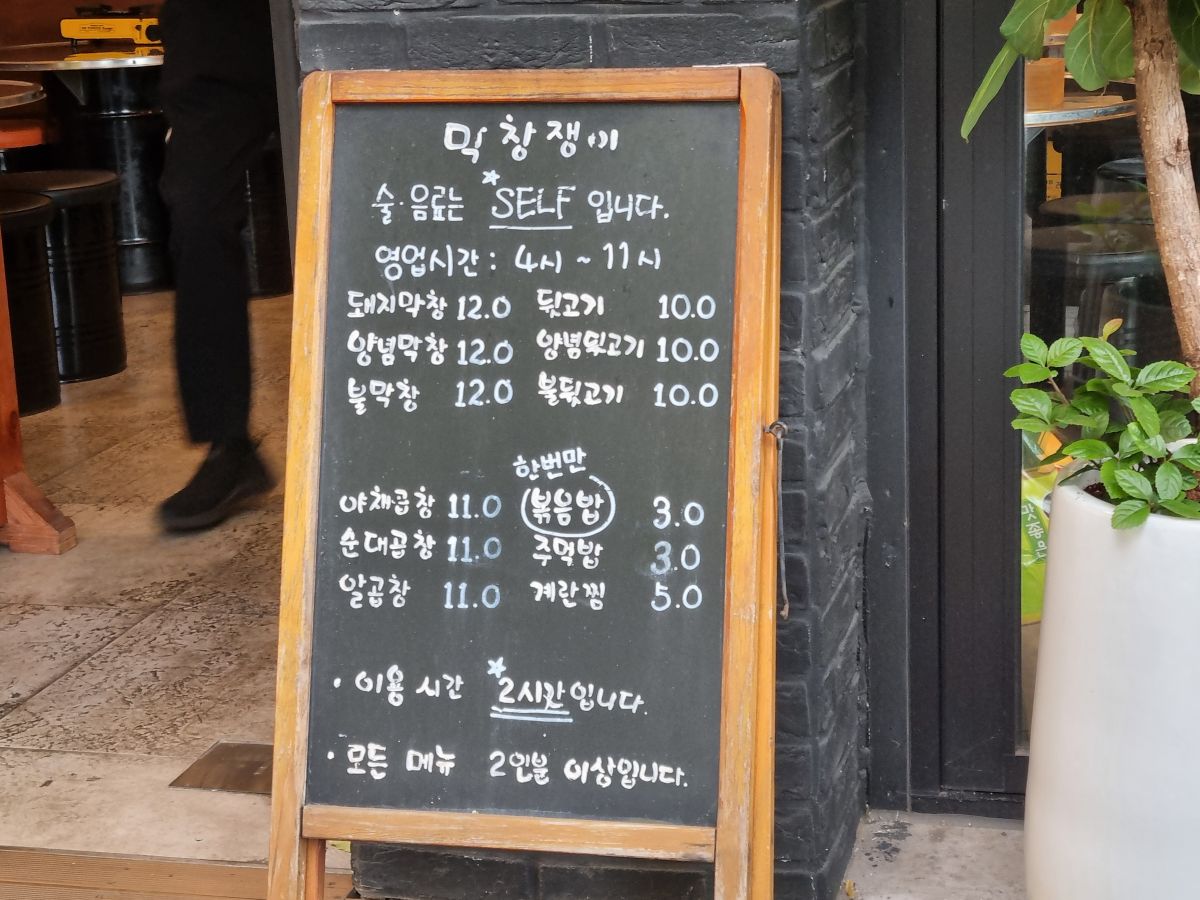 막창쟁이
술·음료는 *SELF 입니다.
영업시간 : 4시 ~ 11시
돼지막창 12.0 뒷고기 10.0
양념막창 12.0 양념뒷고기 10.0
불막창 12.0 불뒷고기 10.0
한번만
야채곱창 11.0 볶음밥 3.0
순대곱창 11.0 주먹밥 3.0
알곱창 11.0 계란찜 5.0
· 이용 시간 *2시간입니다.
· 모든 메뉴 2인분 이상입니다.
맛좋은